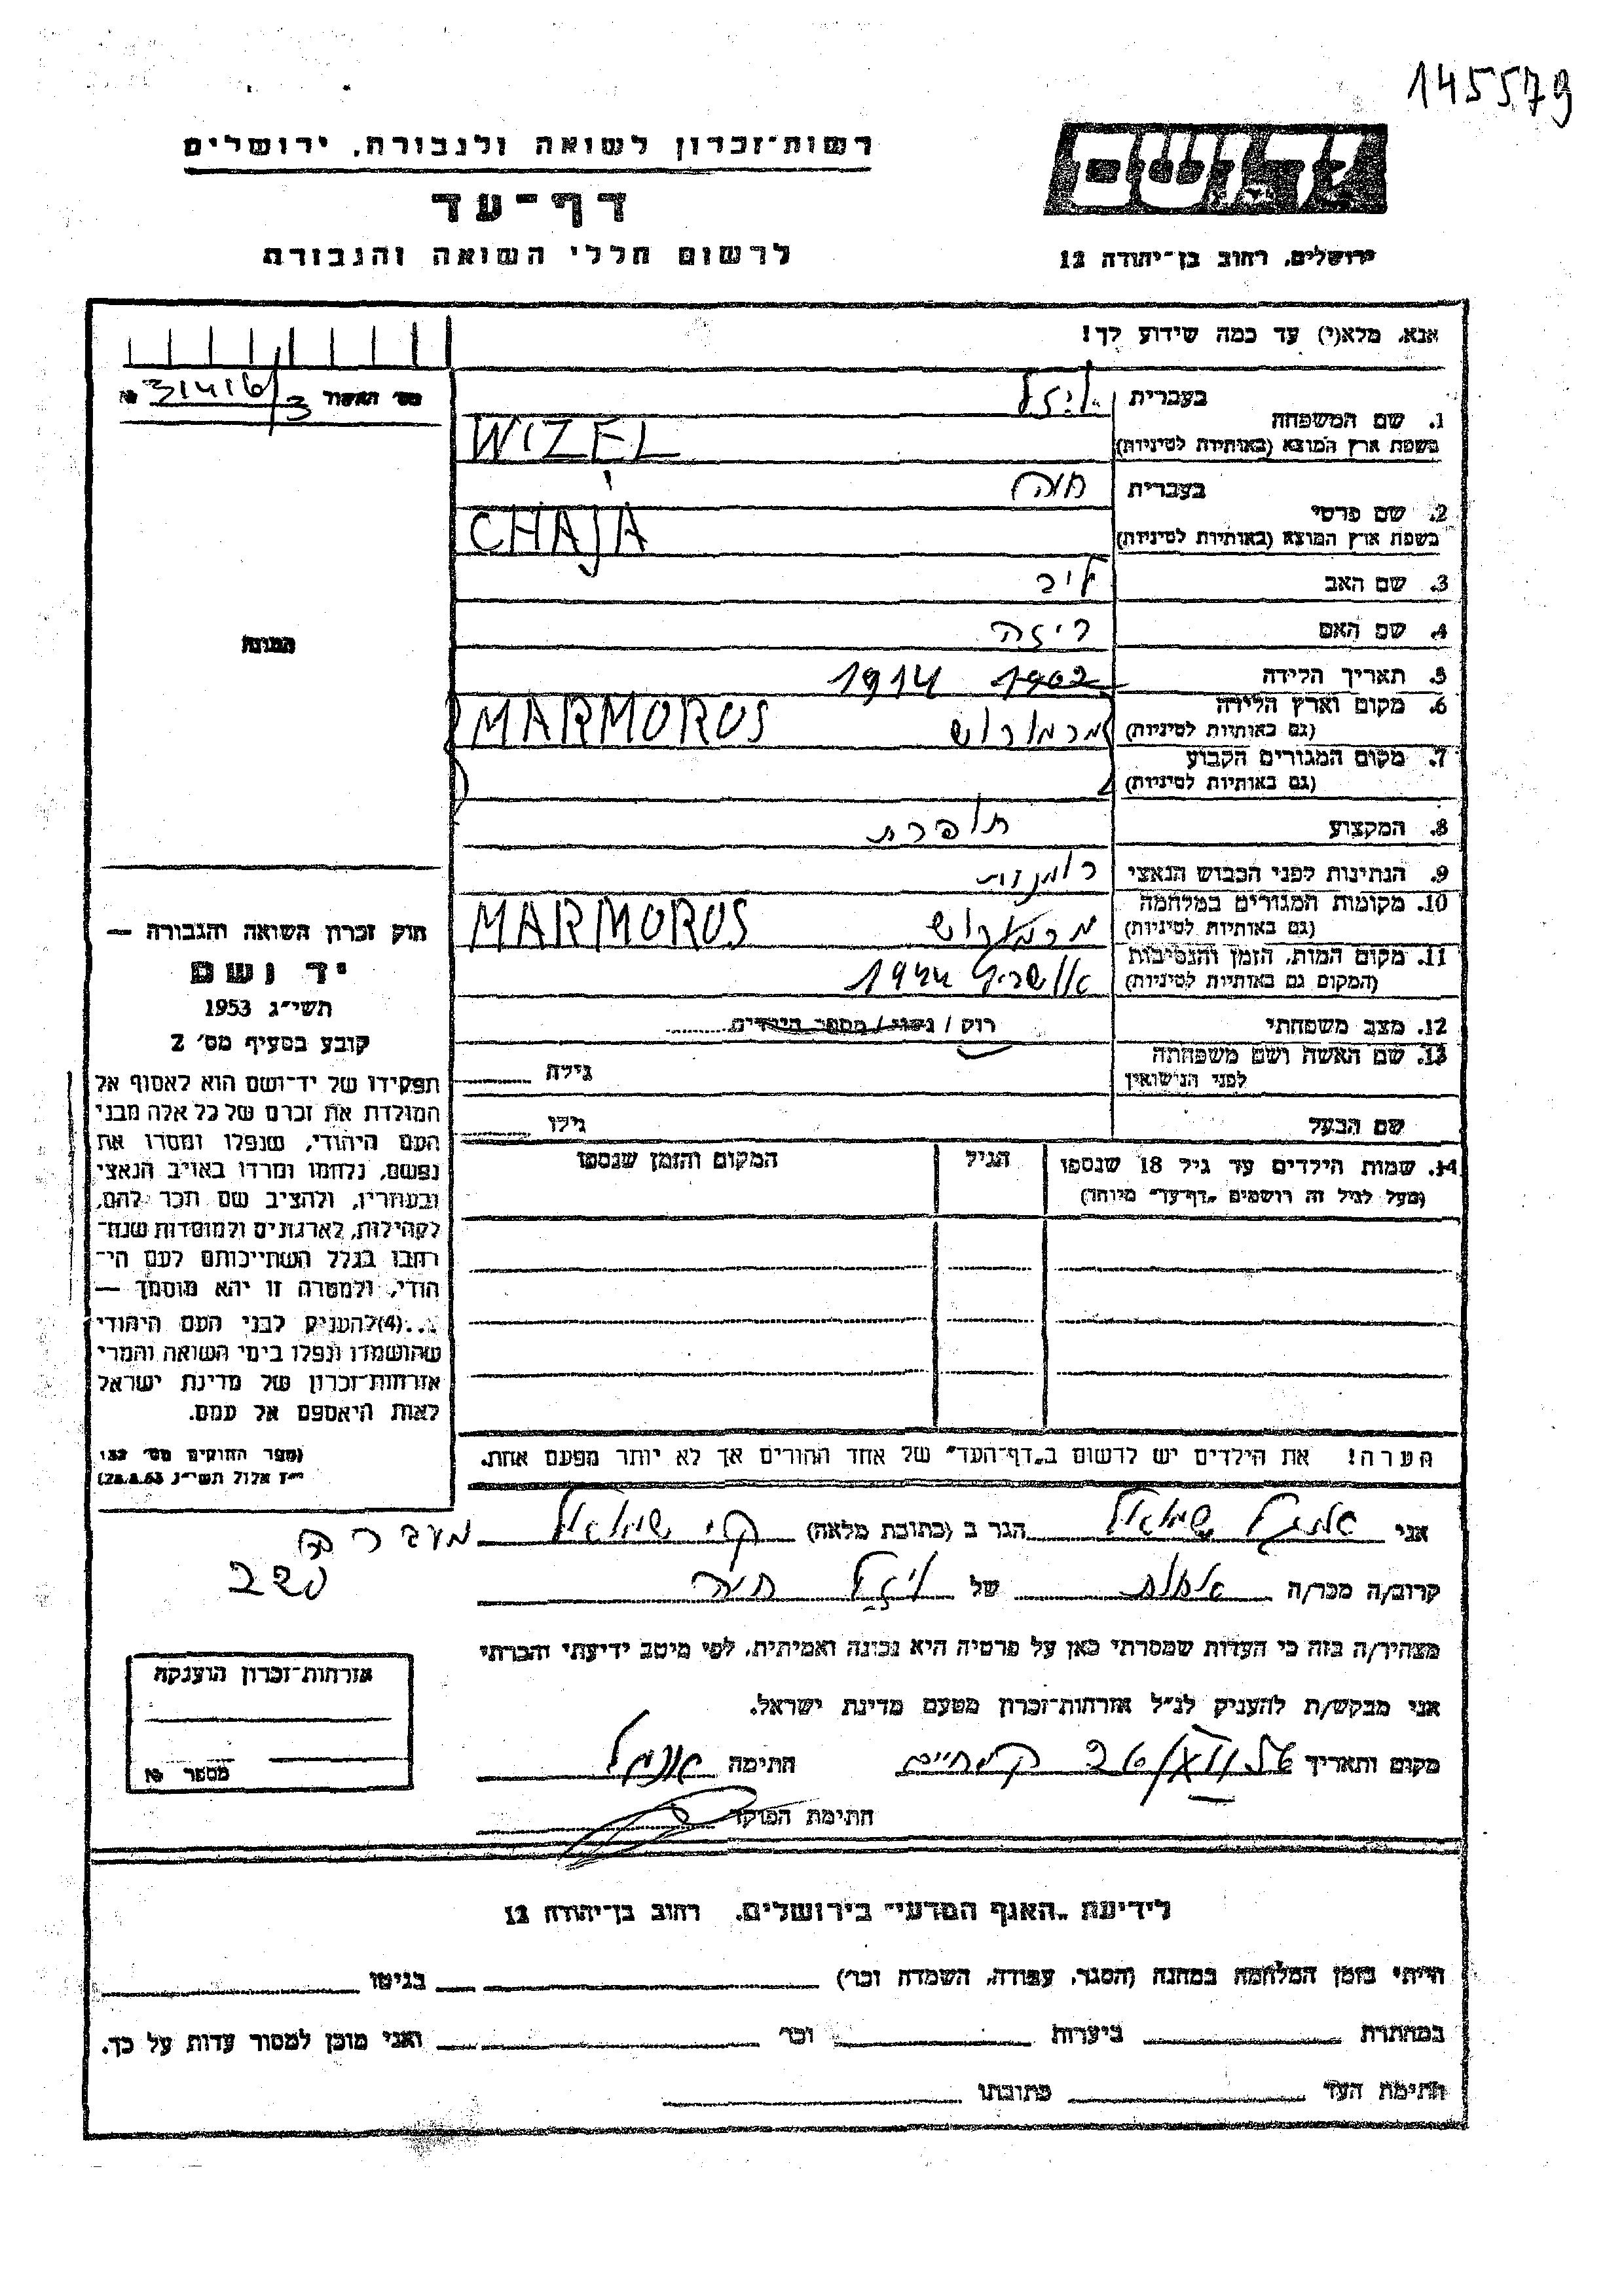 145579
רשות-זכרון לשואה ולגבורה, ירושלים
יד ושם
דף-עד
לרשום חללי השואה והגבורה
ירושלים, רחוב בן-יהודה 12
אנא, מלא(י) עד כמה שידוע לך!
מס' האשור 31416/3 №
1. שם המשפחה
בעברית ויזל
בשפת ארץ המוצא (באותיות לטיניות) WIZEL
2. שם פרטי
בעברית חיה
בשפת ארץ המוצא (באותיות לטיניות) CHAJA
3. שם האב ליב
4. שם האם ריזה
5. תאריך הלידה 1902 1914
6. מקום וארץ הלידה
(גם באותיות לטיניות) מרמורוש MARMOROS
7. מקום המגורים הקבוע
(גם באותיות לטיניות)
8. המקצוע תופרת
9. הנתינות לפני הכבוש הנאצי רומנית
10. מקומות המגורים במלחמה
(גם באותיות לטיניות) מרמורוש MARMOROS
11. מקום המות, הזמן והנסיבות
(המקום גם באותיות לטיניות) אושויץ 1944
12. מצב משפחתי רוק / נשוי / מספר הילדים
13. שם האשה ושם משפחתה
לפני הנישואין גילה
שם הבעל גילו
14. שמות הילדים עד גיל 18 שנספו הגיל המקום והזמן שנספו
(מעל לגיל זה רושמים "דף-עד" מיוחד)
הערה! את הילדים יש לרשום ב"דף-העד" של אחד ההורים אך לא יותר מפעם אחת.
תמונה
חוק זכרון השואה והגבורה —
יד ושם
תשי"ג 1953
קובע בסעיף מס' 2
תפקידו של יד-ושם הוא לאסוף אל
המולדת את זכרם של כל אלה מבני
העם היהודי, שנפלו ומסרו את
נפשם, נלחמו ומרדו באויב הנאצי
ובעוזריו, ולהציב שם וזכר להם,
לקהילות, לארגונים ולמוסדות שנח-
רבו בגלל השתייכותם לעם הי-
הודי, ולמטרה זו יהא מוסמך —
...(4) להעניק לבני העם היהודי
שהושמדו ונפלו בימי השואה והמרי
אזרחות-זכרון של מדינת ישראל
לאות היאספם אל עמם.
(ספר החוקים מס' 132
י"ז אלול תשי"ג 28.8.53)
אני שמואל הגר ב (כתובת מלאה) קרית שמואל מעברה
220
קרוב/ה מכר/ה אחות של ויזל חיה
מצהיר/ה בזה כי העדות שמסרתי כאן על פרטיה היא נכונה ואמיתית, לפי מיטב ידיעתי והכרתי
אני מבקש/ת להעניק לנ"ל אזרחות-זכרון מטעם מדינת ישראל.
מקום ותאריך ק. חיים חתימה
חתימת הפוקד
אזרחות-זכרון הוענקה
מספר №
לידיעת "האגף המדעי" בירושלים, רחוב בן-יהודה 12
הייתי בזמן המלחמה במחנה (הסגר, עבודה, השמדה וכו') בגיטו
במחתרת ביערות וכו' ואני מוכן למסור עדות על כך.
חתימת העד כתובתו